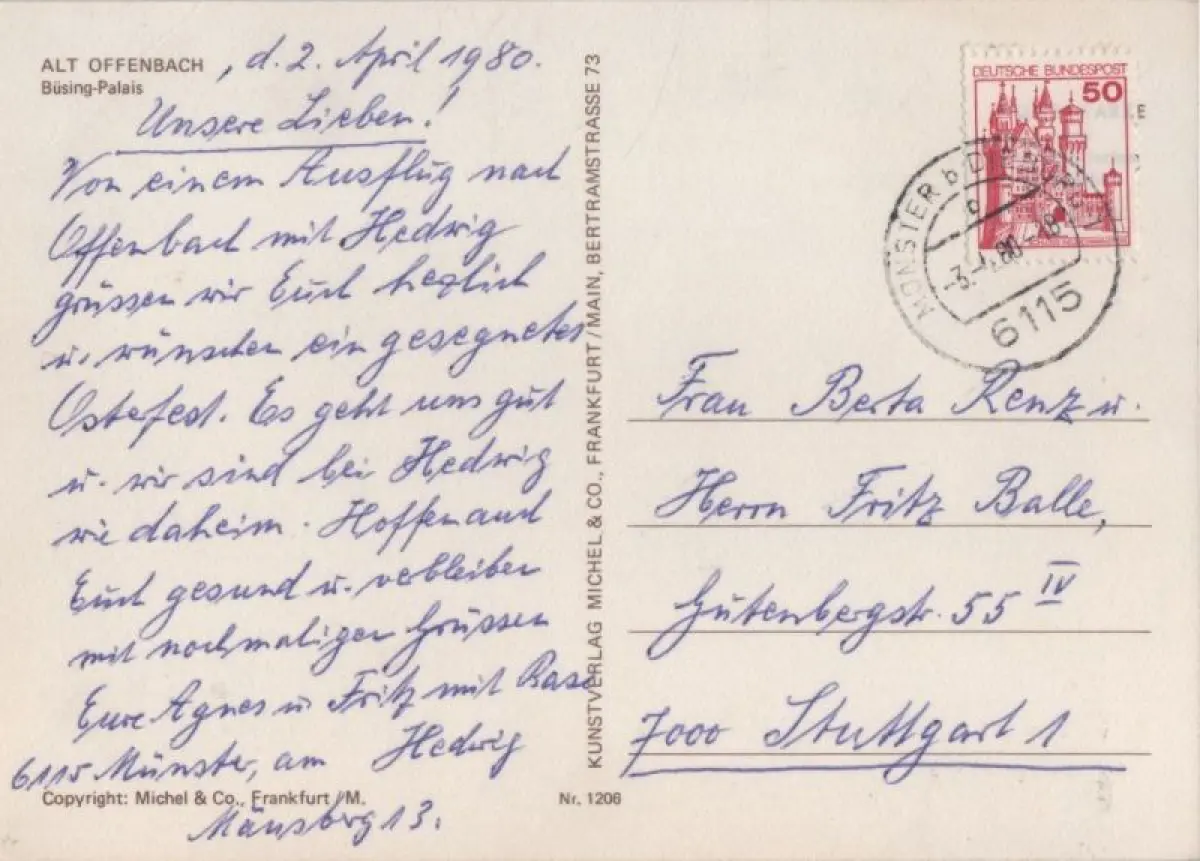 ALT OFFENBACH
Büsing-Palais
, d. 2. April 1980.
Unsere Lieben!
Von einem Ausflug nach
Offenbach mit Hedwig
grüssen wir Euch herzlich
u. wünschen ein gesegnetes
Osterfest. Es geht uns gut
u. wir sind bei Hedwig
wie daheim. Hoffen auch
Euch gesund u. verbleiben
mit nochmaligen Grüssen
Eure Agnes u. Fritz mit Base
Hedwig
6115 Münster, am
Mänsberg 13.
Copyright: Michel & Co., Frankfurt/M.
Nr. 1206
KUNSTVERLAG MICHEL & CO., FRANKFURT/MAIN, BERTRAMSTRASSE 73
DEUTSCHE BUNDESPOST
50
MÜNSTER b
c
-3.-4.80-18
6115
Frau Berta Renz u.
Herrn Fritz Balle,
Gutenbergstr. 55 IV
7000 Stuttgart 1